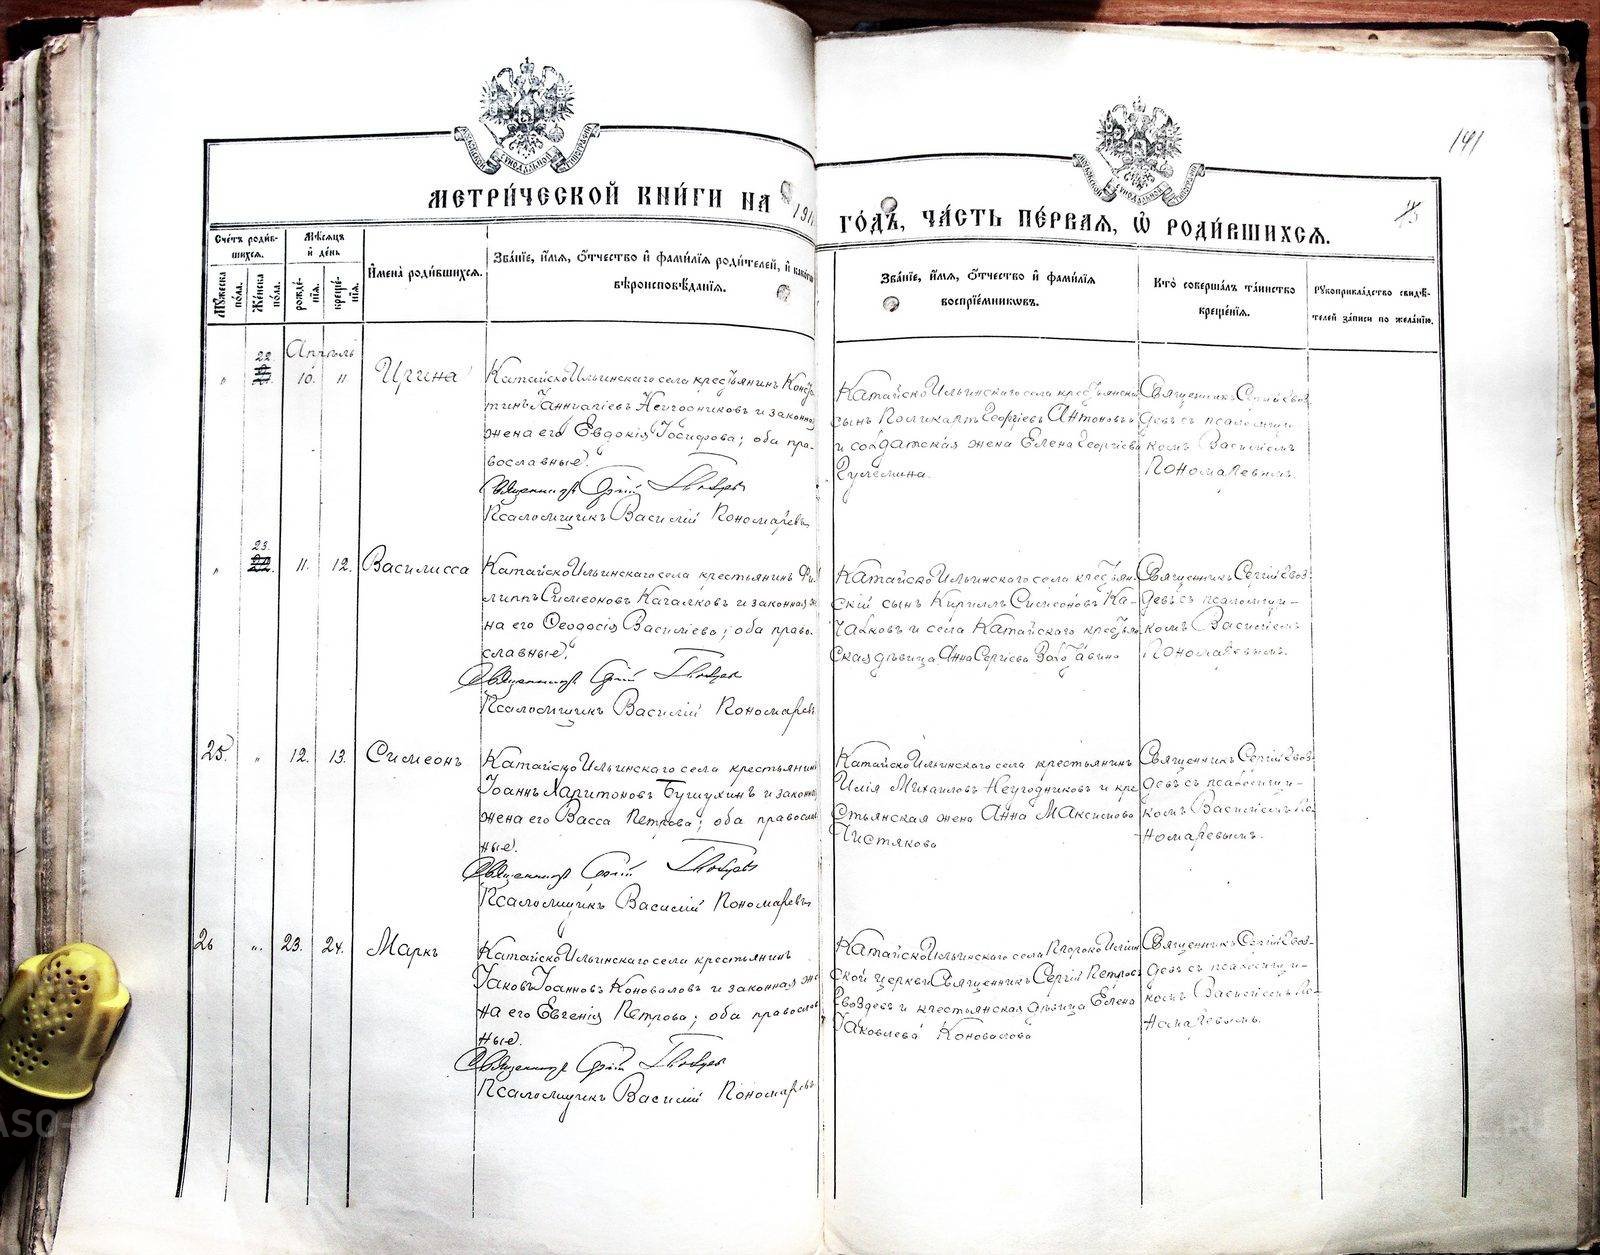 141
МЕТРИЧЕСКОЙ КНИГИ НА 191 ГОДЪ, ЧАСТЬ ПЕРВАЯ, Ѡ РОДИВШИХСЯ.
Счетъ родив-
шихся.
Мѣсяцъ
и день
Мужеска
пола.
Женска
пола.
рожде-
нія.
креще-
нія.
Имена родившихся.
Званіе, имя, отчество и фамилія родителей, и какого
вѣроисповѣданія.
Званіе, имя, отчество и фамилія
воспріемниковъ.
Кто совершалъ таинство
крещенія.
Рукоприкладство свидѣ-
телей записи по желанію.
Апрѣль
22
" 10. 11 Ирина
Катайско Ильинскаго села крестьянинъ Конст
тинъ Неугодниковъ и законна
жена его Евдокія Іосифова; оба пра-
вославные.
Священникъ Сергій Гвоздевъ
Псаломщикъ Василій Пономаревъ
Катайско Ильинскаго села крестьянскі
сынъ Поликарпъ Георгіевъ Антоновъ
и солдатская жена Елена Георгіева
Священникъ Сергій Гвоз-
девъ съ псаломщи-
комъ Василіемъ
Пономаревымъ.
23.
" 11. 12. Василисса
Катайско Ильинскаго села крестьянинъ Фи-
липпъ Симеоновъ Качалковъ и законная же
на его Ѳеодосія Василіева; оба право-
славные.
Священникъ Сергій Гвоздевъ
Псаломщикъ Василій Пономаревъ
Катайско Ильинскаго села крестьян
скій сынъ Кириллъ Симеоновъ Ка-
чалковъ и села Катайскаго крестьян
ская дѣвица Анна Сергіева
Священникъ Сергій Гвоз-
девъ съ псаломщи-
комъ Василіемъ
Пономаревымъ.
25. " 12. 13. Симеонъ
Катайско Ильинскаго села крестьянинъ
Іоаннъ Харитоновъ и законна
жена его Васса Петрова; оба православ
ные.
Священникъ Сергій Гвоздевъ
Псаломщикъ Василій Пономаревъ
Катайско Ильинскаго села крестьянинъ
Илія Михаиловъ Неугодниковъ и кре
стьянская жена Анна Максимова
Чистякова
Священникъ Сергій Гвоз-
девъ съ псаломщи-
комъ Василіемъ По-
номаревымъ.
26 " 23. 24. Маркъ
Катайско Ильинскаго села крестьянинъ
Іаковъ Іоанновъ Коноваловъ и законная же
на его Евгенія Петрова; оба православ
ные.
Священникъ Сергій Гвоздевъ
Псаломщикъ Василій Пономаревъ
Катайско Ильинскаго села Пророко Иліин
ской церкви Священникъ Сергій Петровъ
Гвоздевъ и крестьянская дѣвица Елена
Іаковлева Коновалова
Священникъ Сергій Гвоз-
девъ съ псаломщи-
комъ Василіемъ По-
номаревымъ.